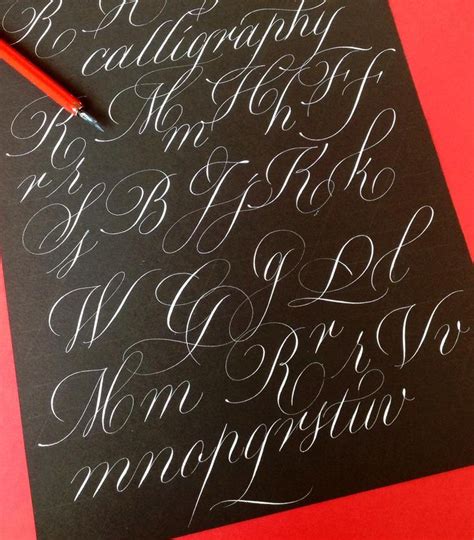 R H
calligraphy
R M m H h F f
r r
S s B J j K k
W G g L l
M m R r r V v
mnopqrstuv